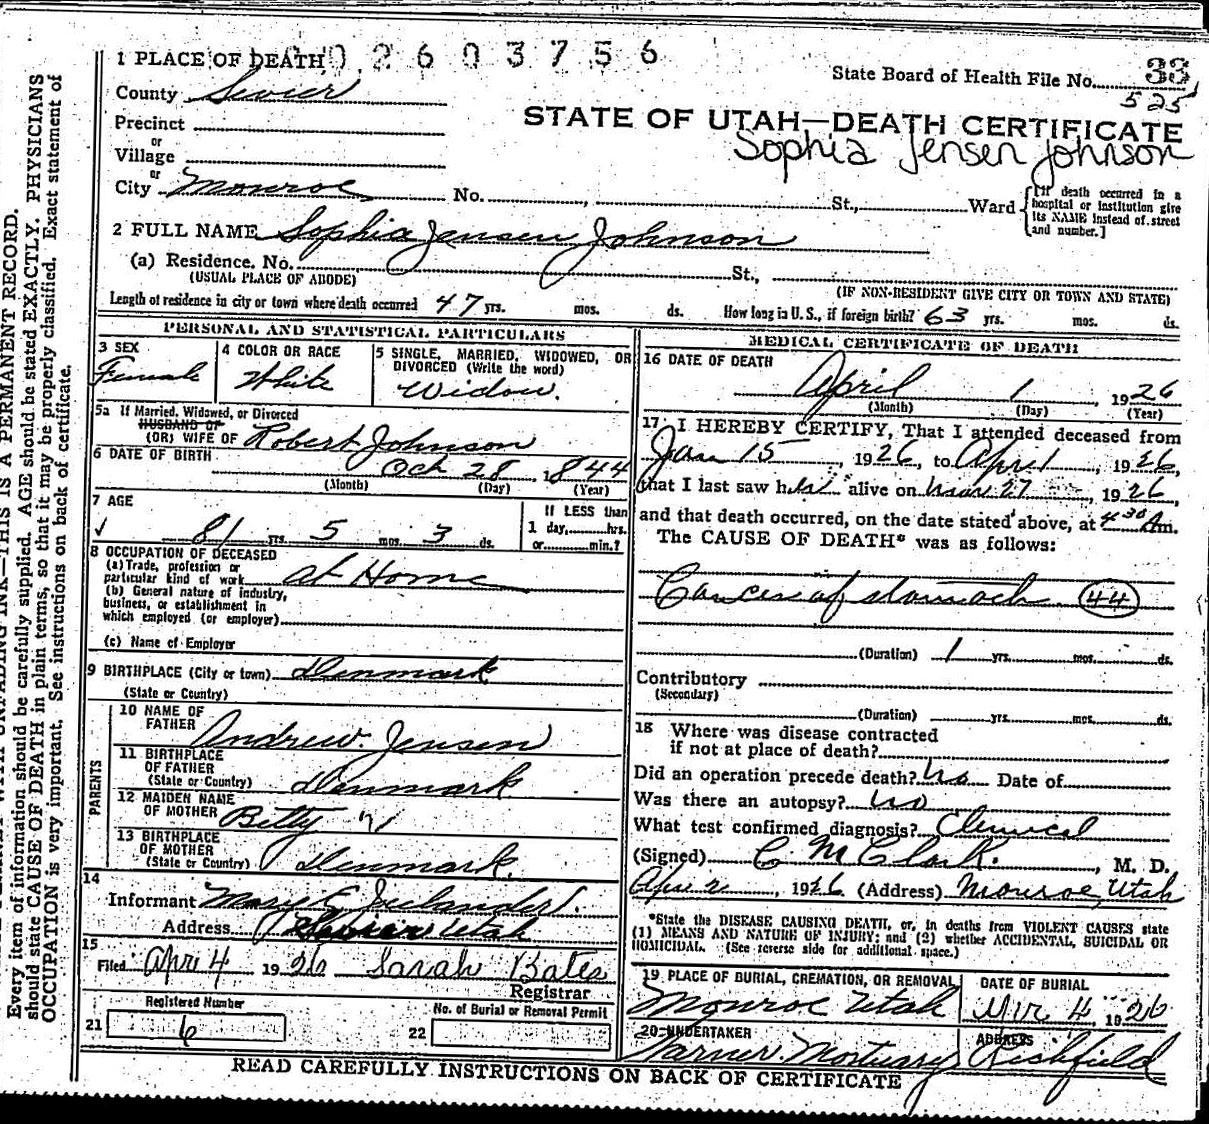 1 PLACE OF DEATH
0 2 6 0 3 7 5 6
State Board of Health File No. 33
525
County Sevier
STATE OF UTAH—DEATH CERTIFICATE
Sophia Jensen Johnson
Precinct
or
Village
or
City Monroe No. , St., Ward
[If death occurred in a hospital or institution give its NAME instead of street and number.]
2 FULL NAME Sophia Jensen Johnson
(a) Residence. No. St.,
(USUAL PLACE OF ABODE)
(IF NON-RESIDENT GIVE CITY OR TOWN AND STATE)
Length of residence in city or town where death occurred 47 yrs. mos. ds. How long in U. S., if foreign birth? 63 yrs. mos. ds.
PERSONAL AND STATISTICAL PARTICULARS
3 SEX
Female
4 COLOR OR RACE
White
5 SINGLE, MARRIED, WIDOWED, OR
DIVORCED (Write the word)
Widow.
5a If Married, Widowed, or Divorced
HUSBAND OF
(OR) WIFE OF Robert Johnson
6 DATE OF BIRTH Oct 28, 1844
(Month) (Day) (Year)
7 AGE
81 yrs. 5 mos. 3 ds.
If LESS than
1 day, hrs.
or min.?
8 OCCUPATION OF DECEASED
(a) Trade, profession or
particular kind of work at Home
(b) General nature of industry,
business, or establishment in
which employed (or employer)
(c) Name of Employer
9 BIRTHPLACE (City or town) Denmark
(State or Country)
PARENTS
10 NAME OF
FATHER Andrew Jensen
11 BIRTHPLACE
OF FATHER
(State or Country) Denmark
12 MAIDEN NAME
OF MOTHER Betty
13 BIRTHPLACE
OF MOTHER
(State or Country) Denmark.
14
Informant Mary E
Address Utah
15
Filed Apr 4 1926 Sarah Bates
Registrar
Registered Number
21 6
No. of Burial or Removal Permit
22
MEDICAL CERTIFICATE OF DEATH
16 DATE OF DEATH
April 1 1926
(Month) (Day) (Year)
17 I HEREBY CERTIFY, That I attended deceased from
Jan 15, 1926, to Apr 1, 1926,
that I last saw her alive on Mar 27, 1926,
and that death occurred, on the date stated above, at 4 30 Am.
The CAUSE OF DEATH* was as follows:
Cancer of stomach 44
(Duration) 1 yrs. mos. ds.
Contributory
(Secondary)
(Duration) yrs. mos. ds.
18 Where was disease contracted
if not at place of death?
Did an operation precede death? No Date of
Was there an autopsy? No
What test confirmed diagnosis? Clinical
(Signed) C M Clark. , M. D.
Apr 2, 1926 (Address) Monroe, Utah
*State the DISEASE CAUSING DEATH, or, in deaths from VIOLENT CAUSES state
(1) MEANS AND NATURE OF INJURY; and (2) whether ACCIDENTAL, SUICIDAL OR
HOMICIDAL. (See reverse side for additional space.)
19 PLACE OF BURIAL, CREMATION, OR REMOVAL
Monroe Utah
DATE OF BURIAL
4, 1926
20 UNDERTAKER
Mortuary
ADDRESS
Richfield
READ CAREFULLY INSTRUCTIONS ON BACK OF CERTIFICATE
UNFADING INK—THIS IS A PERMANENT RECORD.
Every item of information should be carefully supplied. AGE should be stated EXACTLY. PHYSICIANS
should state CAUSE OF DEATH in plain terms, so that it may be properly classified. Exact statement of
OCCUPATION is very important. See instructions on back of certificate.